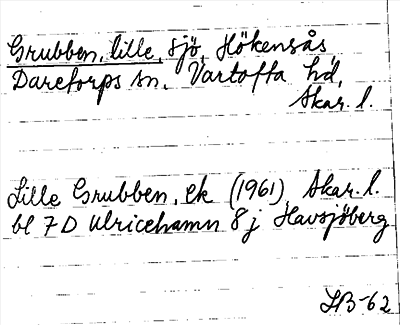 Grubben, lille, sjö, Hökensås
Daretorps sn, Vartofta hd,
Skar. l.
Lille Grubben, ek (1961), Skar. l.
bl 7D Ulricehamn 8j Havsjöberg